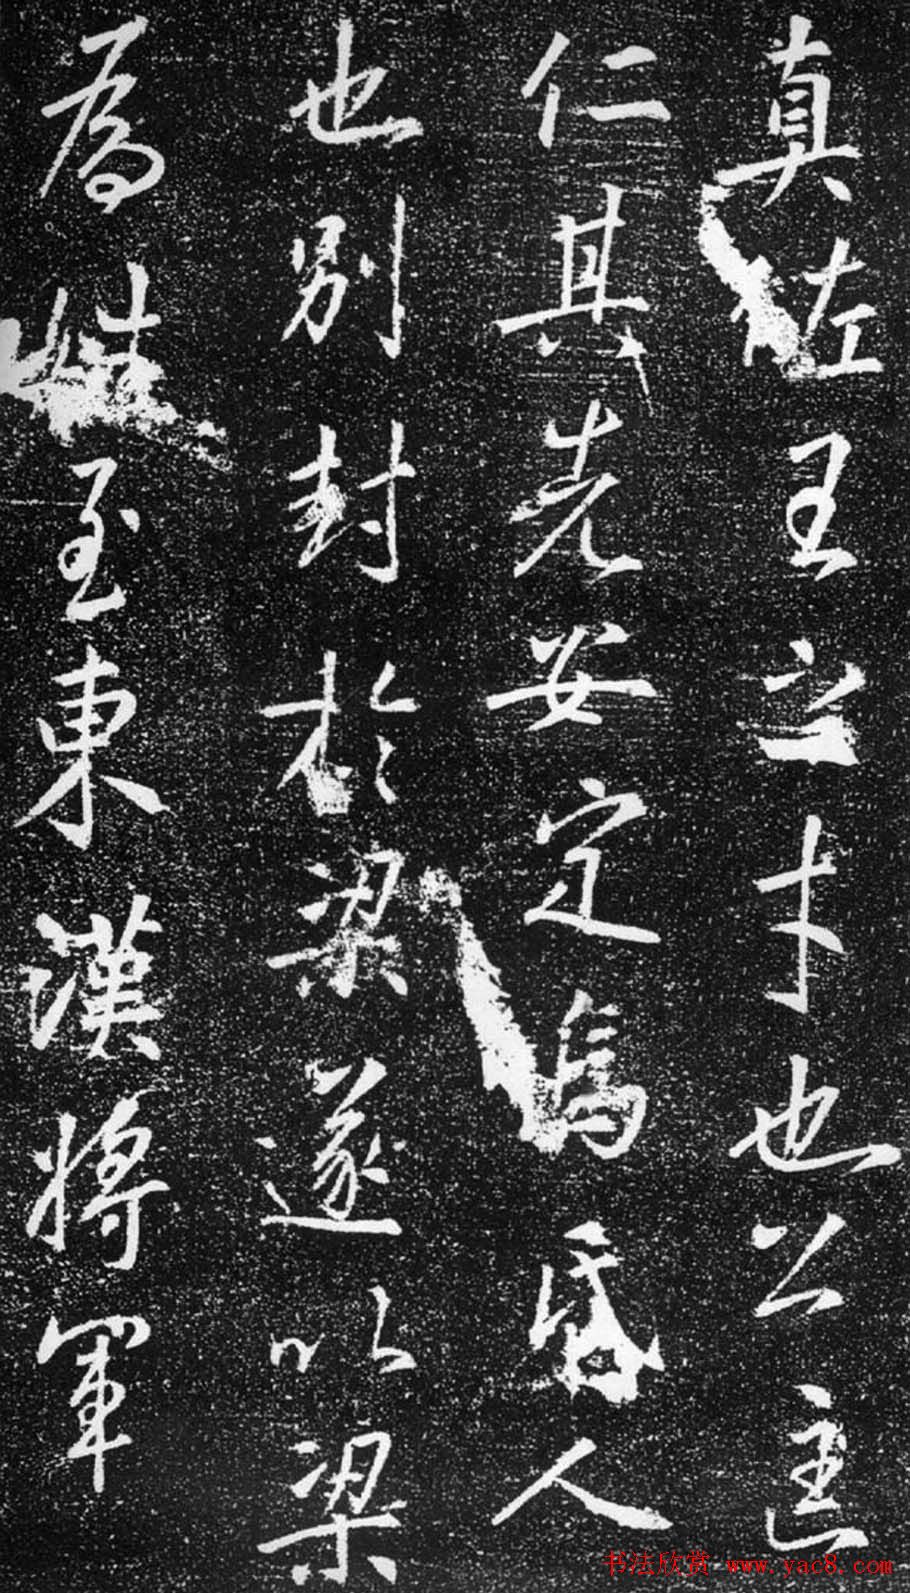 真佐王之才也公匡
仁其先安定烏昏人
也別封於梁遂以梁
為姓至東漢將軍
书法欣赏 www.yac8.com